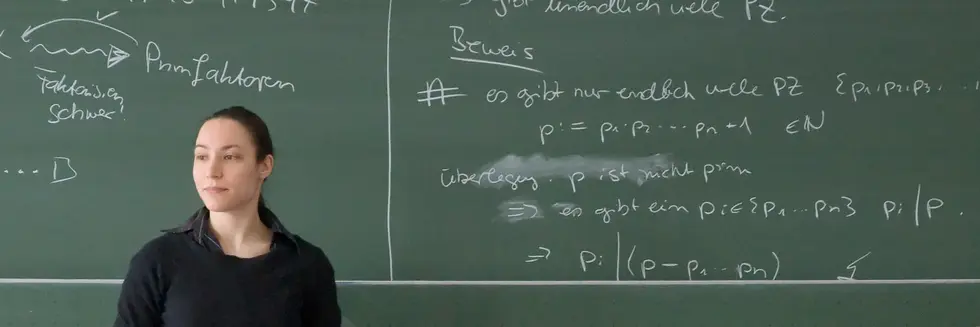 Primfaktoren
Faktorisieren
schwer?
... B
gibt unendlich viele PZ.
Beweis
A es gibt nur endlich viele PZ {p₁,p₂,p₃ ...
p := p₁·p₂· ... pₙ+1 ∈ ℕ
überlegen. p ist nicht prim
=> es gibt ein pᵢ∈{p₁...pₙ} pᵢ | p .
=> pᵢ | (p − p₁ ... pₙ) ↯